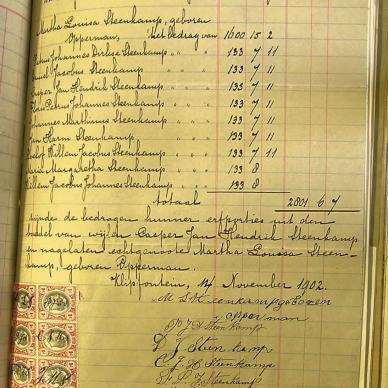 Martha Louisa Steenkamp, geboren
Opperman, het bedrag van 1600 15 2
Johannes Steenkamp " " 133 7 11
Jacobus Steenkamp " " 133 7 11
Casper Jan Hendrik Steenkamp " " 133 7 11
Johannes Steenkamp " " 133 7 11
Johannes Marthinus Steenkamp " " 133 7 11
Jan Harm Steenkamp " " 133 7 11
Willem Jacobus Steenkamp " " 133 7 11
Margaretha Steenkamp " " 133 8
Willem Jacobus Johannes Steenkamp " " 133 8
totaal 2801 6 7
zijnde de bedragen hunner erfporties uit den
boedel van wijlen Casper Jan Hendrik Steenkamp
en nagelaten echtgenoote Martha Louisa Steen-
kamp, geboren Opperman.
Klipfontein, 14 November 1902.
M S H Steenkamp geboren
opperman
P. J. D. Steenkamp
D J Steenkamp
C. J. H Steenkamp
P. J Steenkamp